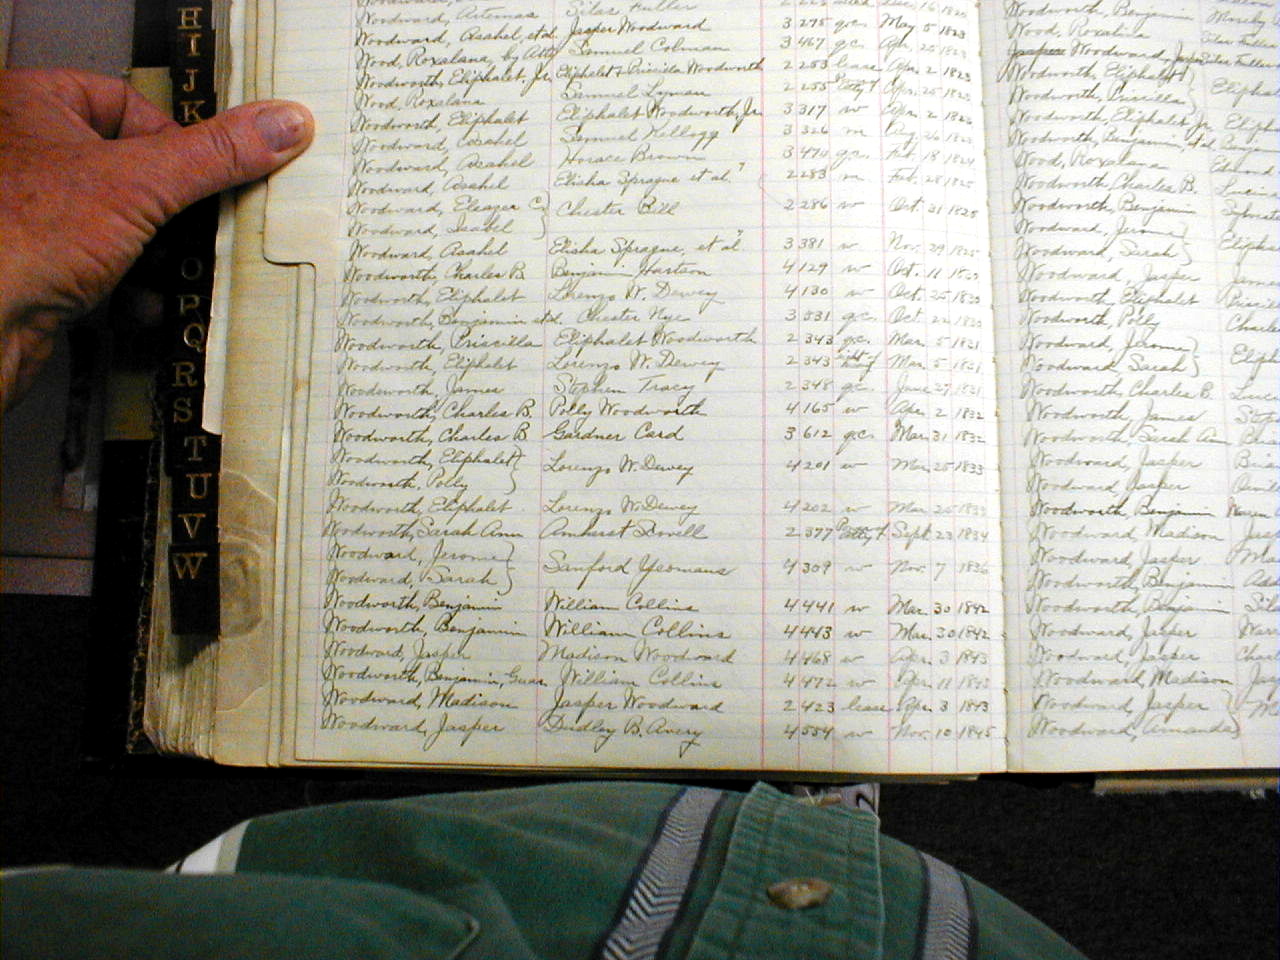 H
I
J
K
O
P
Q
R
S
T
U
V
W
Woodward, Artemas Silas Fuller
Woodward, Asahel et al. Jasper Woodward 3 295 g.c. May 5 1823
Wood, Roxalana, by Atty Samuel Colman 3 467 g.c. Apr. 25 1823
Woodworth, Eliphalet, Jr. Eliphalet & Priscilla Woodworth 2 253 lease Apr. 2 1823
Wood, Roxalana Samuel Lyman 2 255 Apr. 25 1823
Woodworth, Eliphalet Eliphalet Woodworth, Jr. 3 317 w Apr. 2 1823
Woodward, Asahel Samuel Kellogg 3 326 m Aug 26 1823
Woodward, Asahel Horace Brown 3 470 g.c. Feb. 18 1824
Woodward, Asahel Elisha Sprague et al. 2 283 m Feb. 28 1825
Woodward, Eleazer C. } Chester Bill 2 286 w Oct. 31 1825
Woodward, Isabel
Woodward, Asahel Elisha Sprague, et al. 3 381 w Nov. 29 1825
Woodworth, Charles B. Benjamin 4 129 w Oct. 11 1830
Woodworth, Eliphalet Lorenzo W. Dewey 4 130 w Oct. 25 1830
Woodworth, Benjamin et al. Chester Nye 3 531 g.c. Oct. 22 1830
Woodworth, Priscilla Eliphalet Woodworth 2 343 g.c. Mar. 5 1831
Woodworth, Eliphalet Lorenzo W. Dewey 2 343 Mar. 5 1831
Woodworth, James Stephen Tracy 2 348 g.c. June 27 1831
Woodworth, Charles B. Polly Woodworth 4 165 w Apr. 2 1832
Woodworth, Charles B Gardner Card 3 612 g.c. Mar. 31 1832
Woodworth, Eliphalet } Lorenzo W. Dewey 4 201 w Mar. 25 1833
Woodworth, Polly
Woodworth, Eliphalet Lorenzo W. Dewey 4 202 w Mar. 25 1833
Woodworth, Sarah Ann Amherst Scovell 2 377 Sept. 23 1834
Woodward, Jerome } Sanford Yeomans 4 309 w Nov. 7 1836
Woodward, Sarah
Woodworth, Benjamin William Collins 4 441 w Mar. 30 1842
Woodworth, Benjamin William Collins 4 443 w Mar. 30 1842
Woodward, Jasper Madison Woodward 4 468 w Apr. 3 1843
Woodworth, Benjamin, Guar. William Collins 4 472 w Apr. 11 1843
Woodward, Madison Jasper Woodward 2 423 lease Apr. 3 1843
Woodward, Jasper Dudley B. Avery 4 554 w Nov. 10 1845
Woodworth, Benjamin
Wood, Roxalina Silas Fuller
Woodward, Silas Fuller
Woodworth, Eliphalet }
Woodworth, Priscilla
Woodworth, Eliphalet Jr.
Woodworth, Benjamin, et al.
Wood, Roxalana
Woodworth, Charles B.
Woodworth, Benjamin
Woodward, Jerome }
Woodward, Sarah
Woodward, Jasper
Woodworth, Eliphalet
Woodworth, Polly
Woodward, Jerome }
Woodward, Sarah
Woodworth, Charles B.
Woodworth, James
Woodworth, Sarah Ann
Woodward, Jasper
Woodward, Jasper
Woodworth, Benjamin
Woodward, Madison
Woodward, Jasper
Woodworth, Benjamin
Woodworth, Benjamin
Woodward, Jasper
Woodward, Jasper
Woodward, Madison
Woodward, Jasper }
Woodward, Amanda